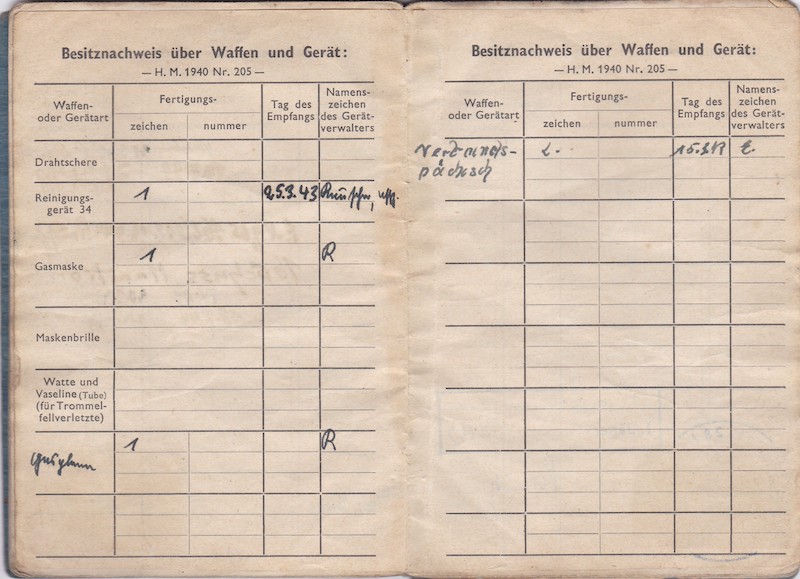 Besitznachweis über Waffen und Gerät:
— H. M. 1940 Nr. 205 —
Waffen-
oder Gerätart
Fertigungs-
zeichen
nummer
Tag des
Empfangs
Namens-
zeichen
des Gerät-
verwalters
Drahtschere
Reinigungs-
gerät 34
1
25.3.43
Gasmaske
1
R
Maskenbrille
Watte und
Vaseline (Tube)
(für Trommel-
fellverletzte)
1
R
Besitznachweis über Waffen und Gerät:
— H. M. 1940 Nr. 205 —
Waffen-
oder Gerätart
Fertigungs-
zeichen
nummer
Tag des
Empfangs
Namens-
zeichen
des Gerät-
verwalters